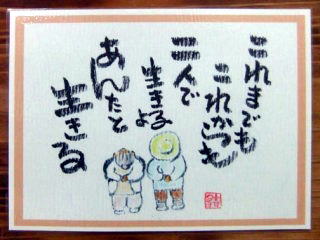 これまでも
これからも
二人で
生きるよ
あんたと
生きる